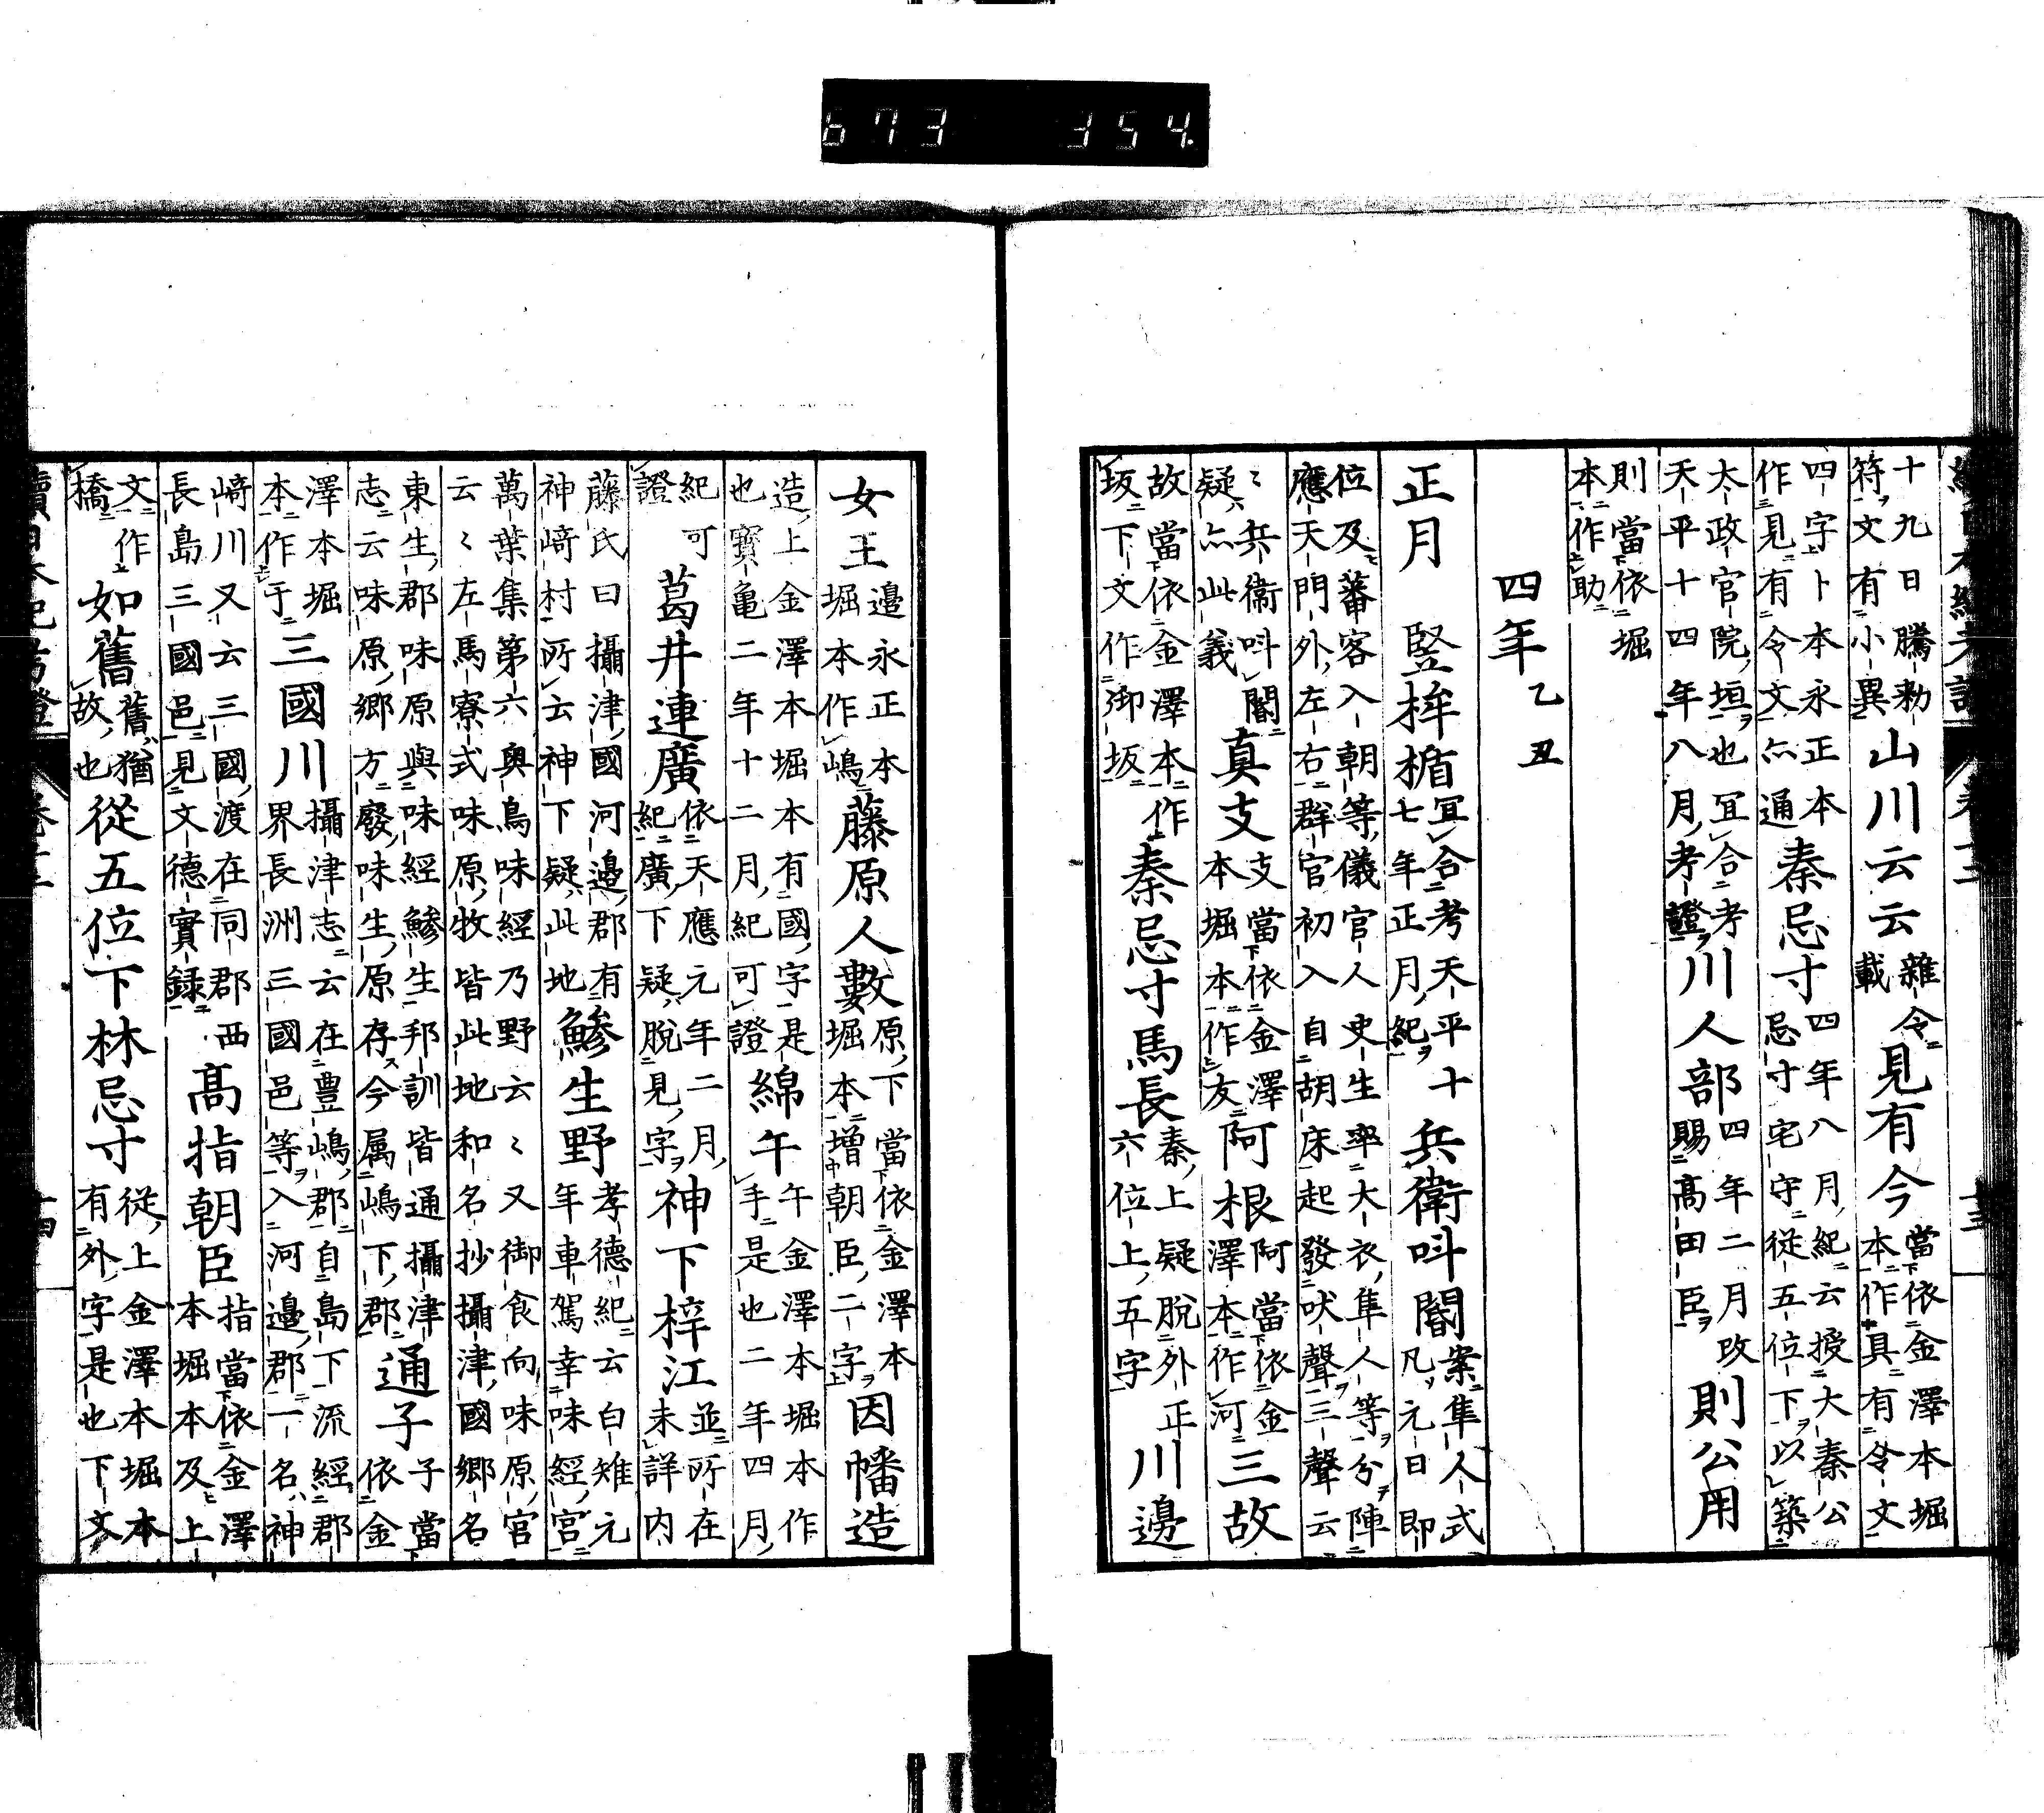 673 354.
十九日騰勅
符文有小異
山川云云
雜令
載
見有今
當依金澤本堀
本作具有令文
四字卜本永正本
作見有令文亦通
秦忌寸
四年八月紀云授大秦公
忌寸宅守從五位下以築
太政官院垣也冝合考
天平十四年八月考證
川人部
四年二月攺
賜髙田臣
則公用
則當依堀
本作助
四年乙丑
正月
竪桙楯
冝合考天平十
七年正月紀
兵衛呌閽
案隼人式
凡元日即
位及蕃客入朝等儀官人史生率大衣隼人等分陣
應天門外左右群官初入自胡床起發吠聲三聲云
〻兵衞呌閽
疑亦此義
真支
支當依金澤
本堀本作友
阿根
阿當依金
澤本作河
三故
故當依金澤本作
坂下文作御坂
秦忌寸馬長
秦上疑脫外正
六位上五字
川邊
女王
邉永正本
堀本作嶋
藤原人數
原下當依金澤本
堀本增朝臣二字
因幡造
造上金澤本堀本有國字是
也寳亀二年十二月紀可證
綿午
午金澤本堀本作
手是也二年四月
紀可
證
葛井連廣
依天應元年二月
紀廣下疑脫見字
神下梓江
並所在
未詳内
藤氏曰攝津國河邉郡有
神﨑村所云神下疑此地
鰺生野
孝德紀云白雉元
年車駕幸味經宮
萬葉集第六奥鳥味經乃野云〻又御食向味原宮
云〻左馬寮式味原牧皆此地和名抄攝津國郷名
東生郡味原與味經鰺生邦訓皆通攝津
志云味原郷方廢味生原存今属嶋下郡
通子
子當
依金
澤本堀
本作于
三國川
攝津志云在豊嶋郡自島下流經郡
界長洲三國邑等入河邉郡一名神
﨑川又云三國渡在同郡西
長島三國邑見文德實録
髙指朝臣
指當依金澤
本堀本及上
文作
橋
如舊
舊猶
故也
從五位下林忌寸
從上金澤本堀本
有外字是也下文